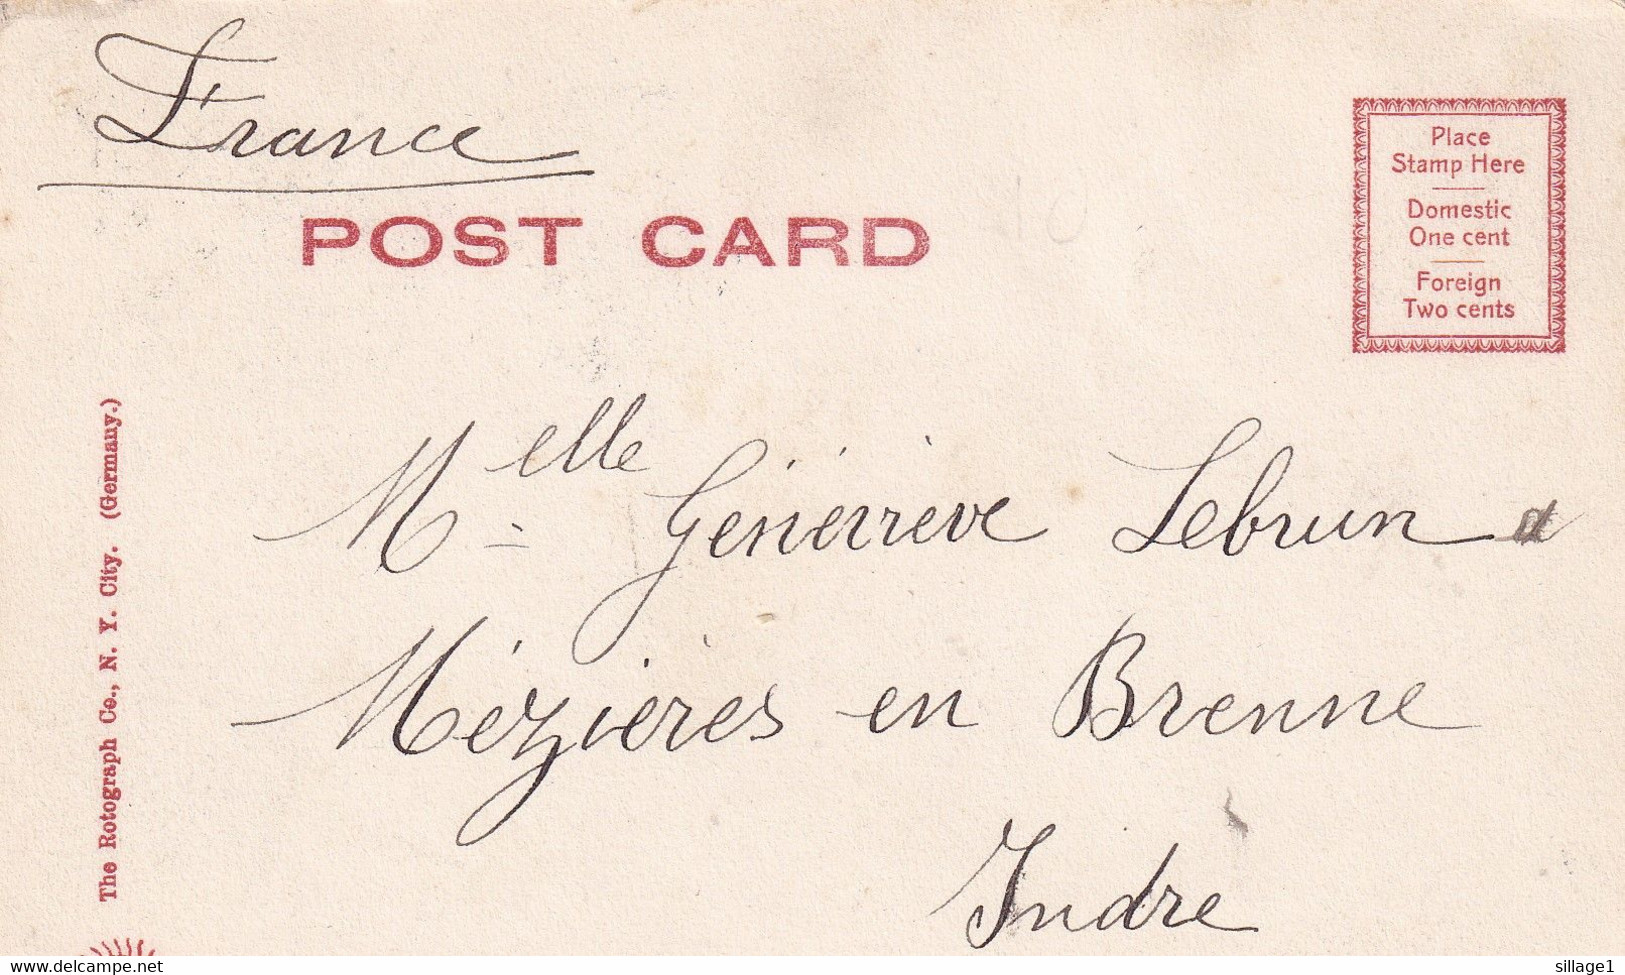 France
POST CARD
Place
Stamp Here
Domestic
One cent
Foreign
Two cents
The Rotograph Co., N. Y. City. (Germany.)
Melle Géneviève Lebrun
Mézières en Brenne
Indre
www.delcampe.net
sillage1